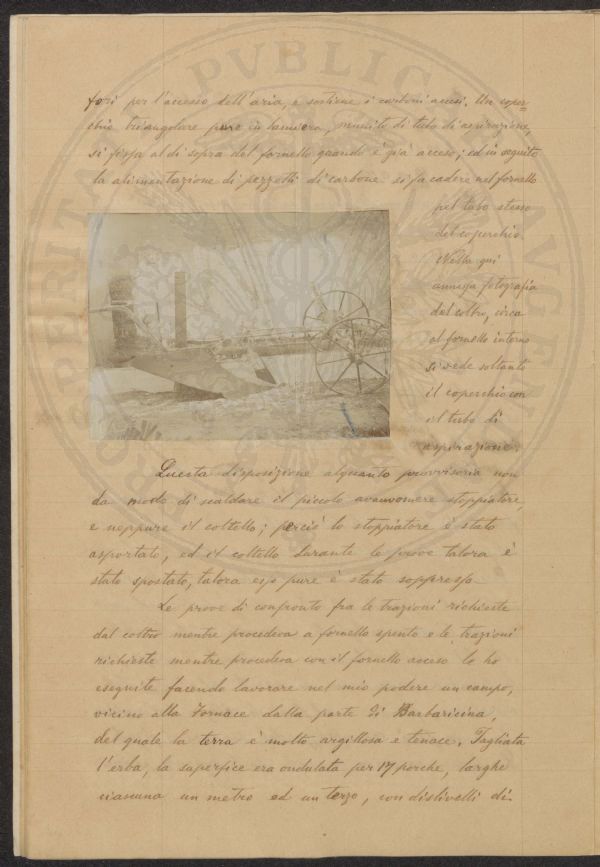 fori per l'accesso dell'aria, e sostiene i carboni accesi. Un coper=
chio triangolare pure in lamiera, munito di tubo di aspirazione,
si fissa al di sopra del fornello quando è già acceso; ed in seguito
la alimentazione di pezzetti di carbone si fa cadere nel fornello
pel tubo stesso
del coperchio.
Nella qui
annessa fotografia
del coltro, circa
al fornello interno
si vede soltanto
il coperchio con
il tubo di
aspirazione.
Questa disposizione alquanto provvisoria non
da modo di scaldare il piccolo avanvomere stoppiatore,
e neppure il coltello; perciò lo stoppiatore è stato
asportato, ed il coltello durante le prove talora è
stato spostato, talora esso pure è stato soppresso
Le prove di confronto fra le trazioni richieste
dal coltro mentre procedeva a fornello spento e le trazioni
richieste mentre procedeva con il fornello acceso le ho
eseguite facendo lavorare nel mio podere un campo,
vicino alla Fornace dalla parte di Barbaricina,
del quale la terra è molto argillosa e tenace. Tagliata
l'erba, la superfice era ondulata per 17 porche, larghe
ciascuna un metro ed un terzo, con dislivelli di.
PVBLICA